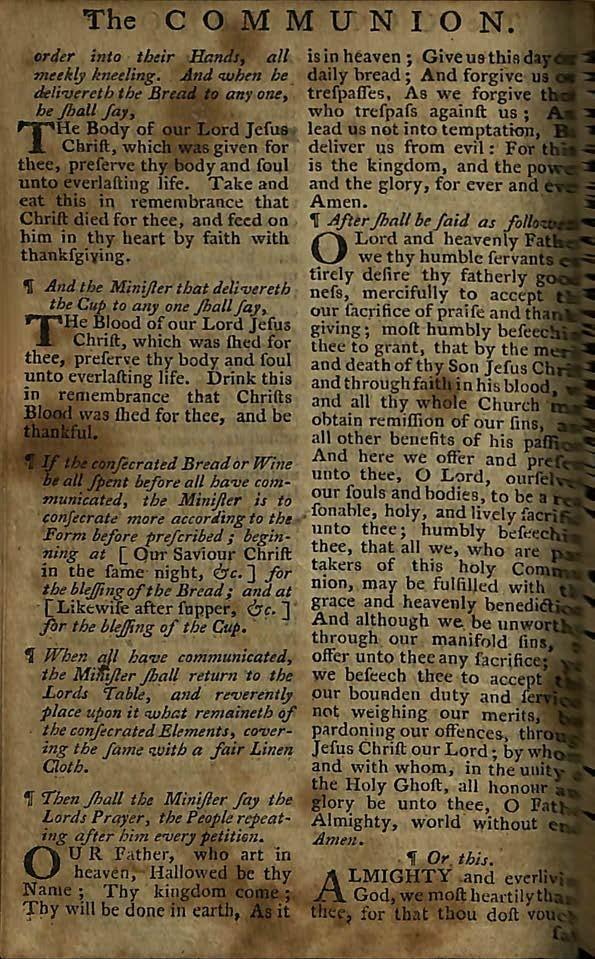 The COMMUNION.
order into their Hands, all
meekly kneeling. And when he
delivereth the Bread to any one,
he ſhall ſay,
THe Body of our Lord Jeſus
Chriſt, which was given for
thee, preſerve thy body and ſoul
unto everlaſting life. Take and
eat this in remembrance that
Chriſt died for thee, and feed on
him in thy heart by faith with
thankſgiving.
¶ And the Miniſter that delivereth
the Cup to any one ſhall ſay,
THe Blood of our Lord Jeſus
Chriſt, which was ſhed for
thee, preſerve thy body and ſoul
unto everlaſting life. Drink this
in remembrance that Chriſts
Blood was ſhed for thee, and be
thankful.
¶ If the conſecrated Bread or Wine
be all ſpent before all have com-
municated, the Miniſter is to
conſecrate more according to the
Form before preſcribed ; begin-
ning at [ Our Saviour Chriſt
in the ſame night, &c. ] for
the bleſſing of the Bread ; and at
[ Likewiſe after ſupper, &c. ]
for the bleſſing of the Cup.
¶ When all have communicated,
the Miniſter ſhall return to the
Lords Table, and reverently
place upon it what remaineth of
the conſecrated Elements, cover-
ing the ſame with a fair Linen
Cloth.
¶ Then ſhall the Miniſter ſay the
Lords Prayer, the People repeat-
ing after him every petition.
OUR Father, who art in
heaven, Hallowed be thy
Name ; Thy kingdom come ;
Thy will be done in earth, As it
is in heaven ; Give us this day
daily bread ; And forgive us
treſpaſſes, As we forgive
who treſpaſs againſt us ;
lead us not into temptation,
deliver us from evil : For this
is the kingdom, and the
and the glory, for ever and
Amen.
¶ After ſhall be ſaid as
O Lord and heavenly
we thy humble ſervants
tirely deſire thy fatherly
neſs, mercifully to accept
our ſacrifice of praiſe and
giving ; moſt humbly
thee to grant, that by the
and death of thy Son Jeſus
and through faith in his blood,
and all thy whole Church
obtain remiſſion of our ſins,
all other benefits of his
And here we offer and
unto thee, O Lord,
our ſouls and bodies, to be a
ſonable, holy, and lively
unto thee; humbly
thee, that all we, who are
takers of this holy
nion, may be fulfilled with
grace and heavenly
And although we be
through our manifold ſins,
offer unto thee any ſacrifice;
we beſeech thee to accept
our bounden duty and
not weighing our merits,
pardoning our offences,
Jeſus Chriſt our Lord ; by
and with whom, in the unity
the Holy Ghoſt, all honour
glory be unto thee, O
Almighty, world without
Amen.
¶ Or this.
ALMIGHTY and
God, we moſt heartily
thee, for that thou doſt